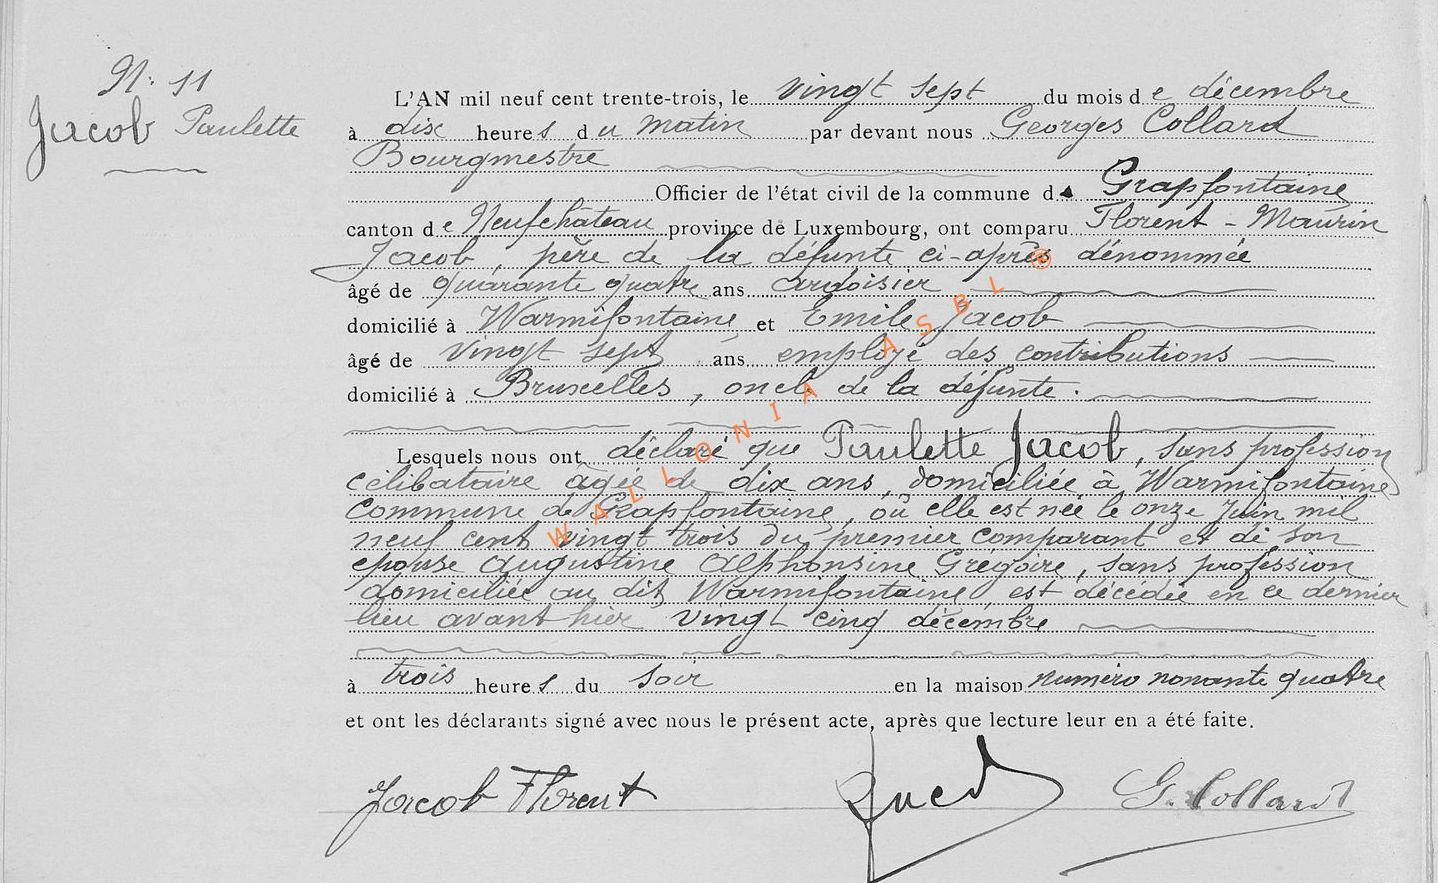 N: 11
Jacob Paulette
L'AN mil neuf cent trente-trois, le vingt sept du mois de décembre
à dix heures du matin par devant nous Georges Collard
Bourgmestre
Officier de l'état civil de la commune de Grapfontaine
canton de Neufchâteau province de Luxembourg, ont comparu Florent - Maurin
Jacob, père de la défunte ci-après dénommée
âgé de quarante quatre ans ardoisier
domicilié à Warmifontaine et Emile Jacob
âgé de vingt sept ans employé des contributions
domicilié à Bruxelles, oncle de la défunte.
Lesquels nous ont déclaré que Paulette Jacob, sans profession
célibataire âgée de dix ans, domiciliée à Warmifontaine
commune de Grapfontaine, où elle est née le onze Juin mil
neuf cent vingt trois du premier comparant et de son
épouse Augustine Alphonsine Grégoire, sans profession
domiciliée au dit Warmifontaine, est décédée en ce dernier
lieu avant hier vingt cinq décembre
à trois heures du soir en la maison numéro nonante quatre
et ont les déclarants signé avec nous le présent acte, après que lecture leur en a été faite.
Jacob Florent G. Collard
WALLONIA ASBL ®